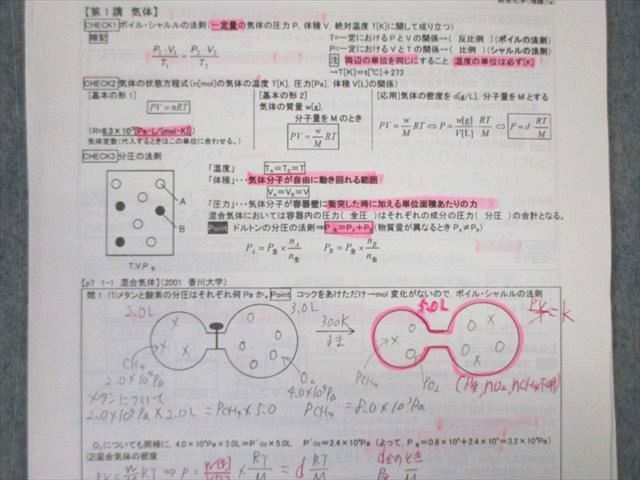 【第1講 気体】
CHECK1 ボイル・シャルルの法則(一定量の気体の圧力 P, 体積 V, 絶対温度 T[K]に関して成り立つ)
暗記
P₁・V₁/T₁ = P₂・V₂/T₂
T=一定における P と V の関係→( 反比例 )(ボイルの法則)
P=一定における V と T の関係→( 比例 )(シャルルの法則)
注 両辺の単位を同じにすること, 温度の単位は必ず[K]
→T[K]=t[℃]+273
CHECK2 気体の状態方程式(n[mol]の気体の温度 T[K], 圧力[Pa], 体積 V[L]の関係)
[基本の形1]
PV=nRT
(R=8.3×10³[Pa・L/(mol・K)]
気体定数(代入するときはこの単位に合わせる。)
[基本の形2]
気体の質量 w[g],
分子量を M のとき
PV = w/M RT
[応用]気体の密度を d[g/L], 分子量を M とする
PV = w/M RT ⇔ P = w[g]/V[L] · RT/M ⇔ P = d · RT/M
CHECK3 分圧の法則
「温度」 T_A=T_B=T
「体積」・・・気体分子が自由に動き回れる範囲
V_A=V_B=V
「圧力」・・・気体分子が容器壁に衝突した時に加える単位面積あたりの力
混合気体においては容器内の圧力( 全圧 )はそれぞれの成分の圧力( 分圧 )の合計となる。
Point ドルトンの分圧の法則⇒P全=P_A+P_B(物質量が異なるとき P_A≠P_B)
P_A = P全 × n_A/n全 P_B = P全 × n_B/n全
A
B
T,V,P全
[p7 1-1 混合気体](2001 香川大学)
問1 (1)メタンと酸素の分圧はそれぞれ何 Pa か。Point コックをあけただけ→mol 変化がないので, ボイル・シャルルの法則
2.0L
3.0L
300K
まま
5.0L
PV/T = k
CH4
2.0×10⁴Pa
O2
4.0×10⁴Pa
PCH4
PO2
メタンについて
2.0×10⁴Pa × 2.0L = PCH4 × 5.0 PCH4 = 8.0×10³Pa
O₂についても同様に, 4.0×10⁴Pa×3.0L=P'O₂×5.0L P'O₂=2.4×10⁴Pa (よって, P全=0.8×10⁴+2.4×10⁴=3.2×10⁴Pa)
(2)混合気体の密度
d全のとき